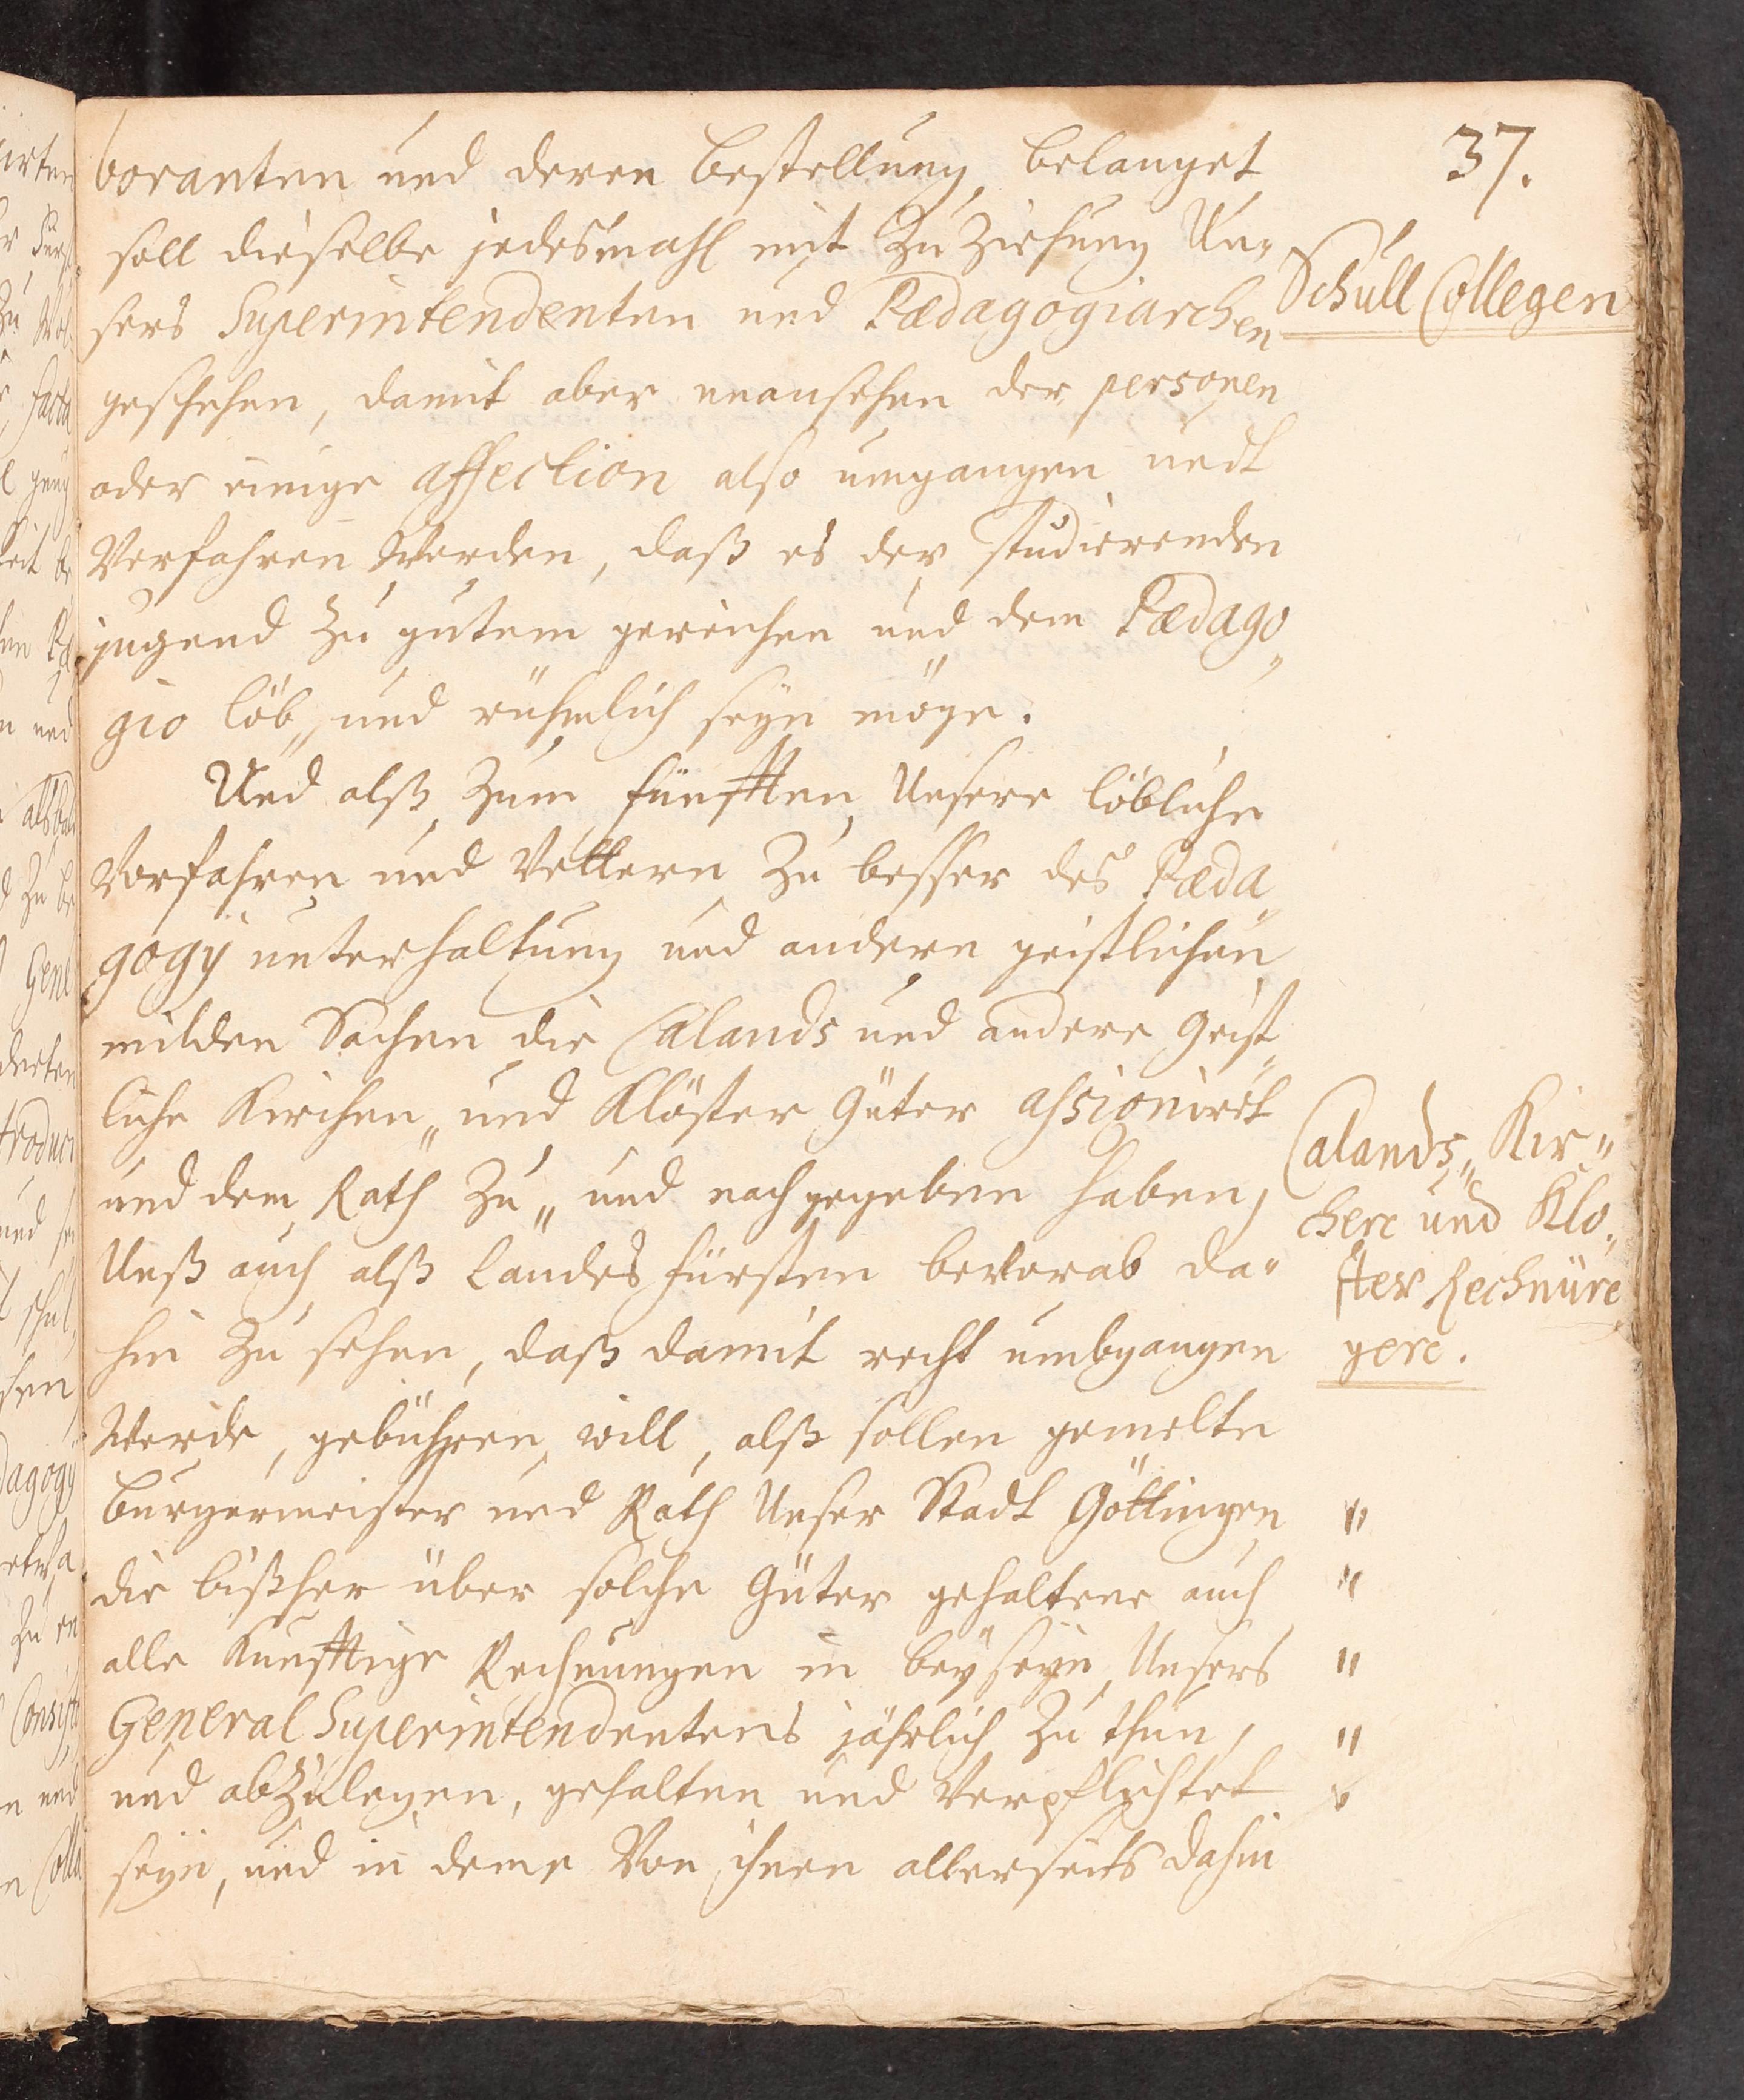 37.
boranten und deren bestellung, belanget
soll dieselbe jedesmahl mit Zuziehung Un"
sers Superintendenten und Pædagogiarchen
Schull Collegen
geschehen, damit aber unansehen der personen
oder einige affection also umgangen undt
Verfahren Werden, daß es der studierenden
jugend zu gutem gereichen und dem Pædago„
gio löb„ und rühmlich seÿn möge.
Und alß zum fünfften Unsere löbliche
Vorfahren und Vettern zu besser des Pæda„
gogÿ unterhaltung und andern geistlichen
milden Sachen die Calands und andere Geist„
liche Kirchen„ und Klöster Güter assignirt
und dem Rath zu„ und nachgegeben haben,
Unß auch alß Landes fürsten bevorab da"
hin zu sehen, daß damit recht umbgangen
Calands„ Kir"
chen und Klo„
ster Rechnun
gen.
Werde, gebühren will, alß sollen gemelte
Burgermeister und Rath Unser Stadt Göttingen "
die bißher über solche Güter gehaltene auch "
alle Kunfftige Rechnungen in beÿseÿn Unsers "
General Superintendentens jährlich zu thun, "
und abzulegen, gehalten und Verpflichtet "
seÿn, und in deme Von ihnen allerseits dahin